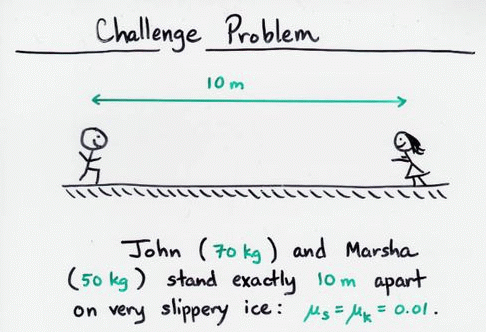 Challenge Problem
10 m
John (70 kg) and Marsha
(50 kg) stand exactly 10 m apart
on very slippery ice: μs = μk = 0.01.